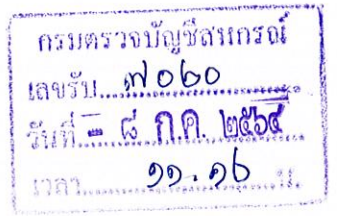 กรมตรวจบัญชีสหกรณ์
เลขรับ ๗๐๖๐
วันที่ - ๘ ก.ค. ๒๕๖๔
เวลา ๑๑.๑๖ น.